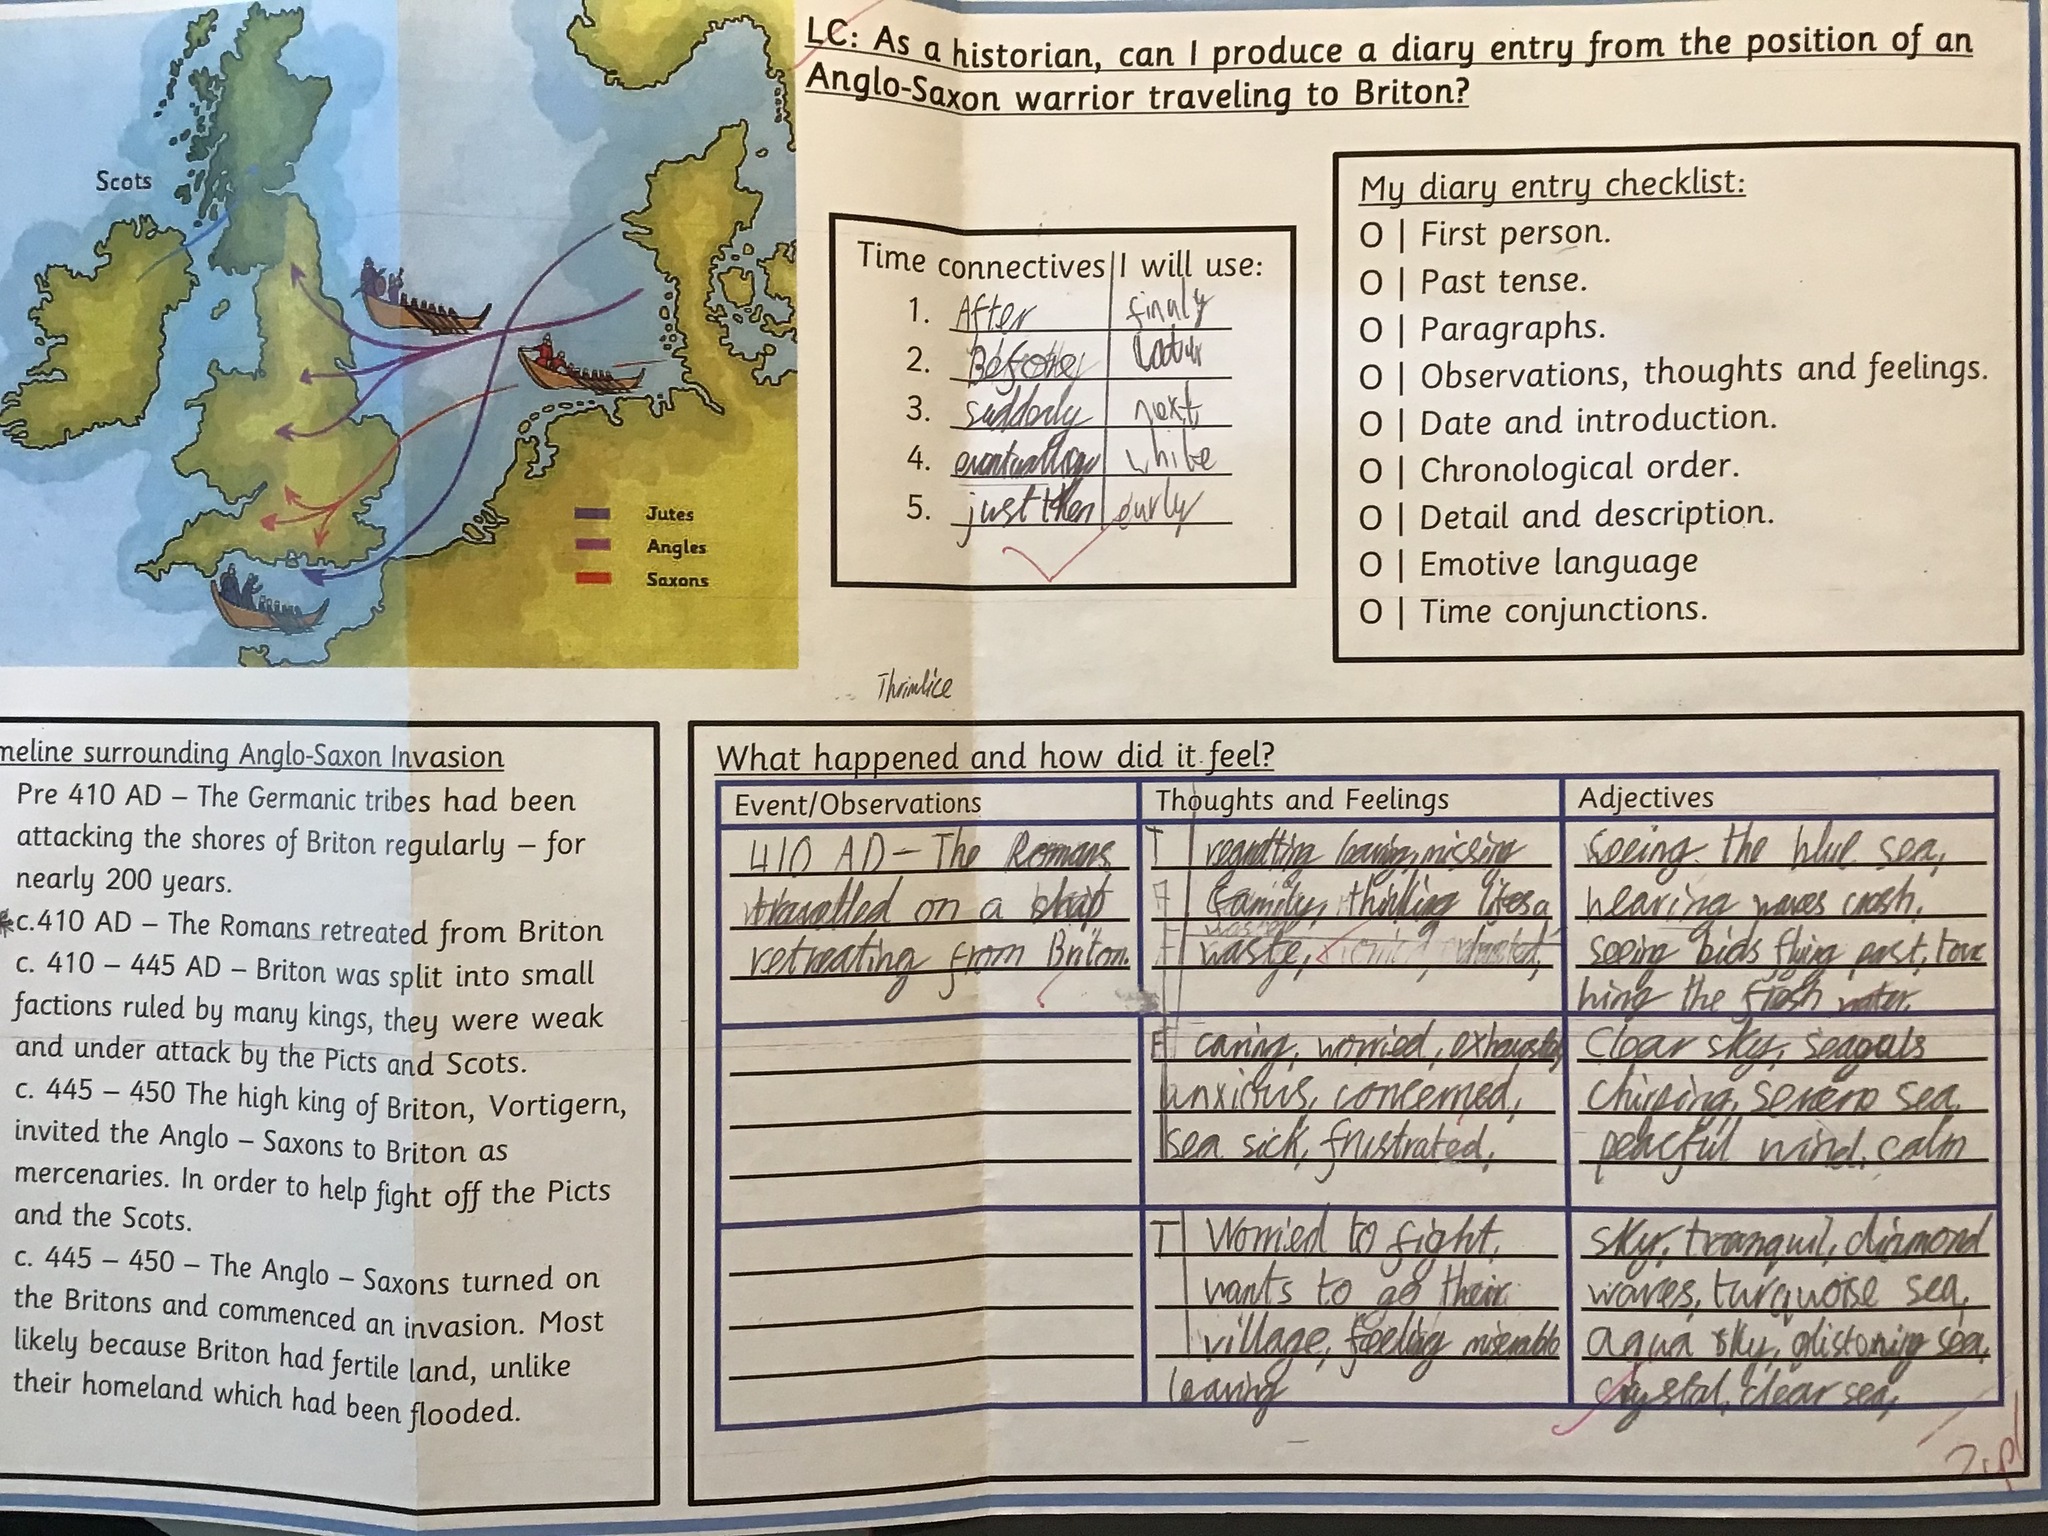 LC: As a historian, can I produce a diary entry from the position of an
Anglo-Saxon warrior traveling to Briton?
Scots
Jutes
Angles
Saxons
Time connectives | I will use:
1. After finaly
2. Before
3. suddenly next
4. while
5. just then early
My diary entry checklist:
O | First person.
O | Past tense.
O | Paragraphs.
O | Observations, thoughts and feelings.
O | Date and introduction.
O | Chronological order.
O | Detail and description.
O | Emotive language
O | Time conjunctions.
Thrimlice
meline surrounding Anglo-Saxon Invasion
Pre 410 AD – The Germanic tribes had been
attacking the shores of Briton regularly – for
nearly 200 years.
c.410 AD – The Romans retreated from Briton
c. 410 – 445 AD – Briton was split into small
factions ruled by many kings, they were weak
and under attack by the Picts and Scots.
c. 445 – 450 The high king of Briton, Vortigern,
invited the Anglo – Saxons to Briton as
mercenaries. In order to help fight off the Picts
and the Scots.
c. 445 – 450 – The Anglo – Saxons turned on
the Britons and commenced an invasion. Most
likely because Briton had fertile land, unlike
their homeland which had been flooded.
What happened and how did it feel?
Event/Observations
410 AD – The Romans
travelled on a ship
retreating from Briton.
Thoughts and Feelings
T regretting leaving, missing
family, thinking lifes a
waste,
F caring, worried,
anxious, concerned,
sea sick, frustrated,
T Worried to fight,
wants to go their
village, feeling
leaving
Adjectives
seeing the blue sea,
hearing waves crash,
seeing bids flying past, touc
hing the fresh water.
Clear sky, seaguls
chirping, sea,
peacful wind, calm
sky, tranquil, diamond
waves, turquoise sea,
aqua sky, sea,
crystal, clear sea,